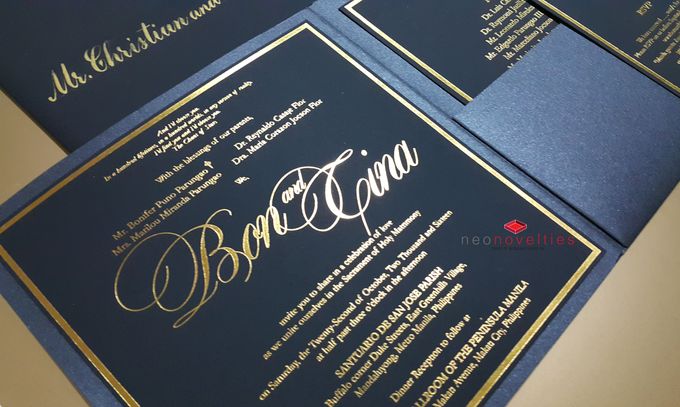 Mr. Christian and
And I'd choose you,
in a hundred lifetimes, in a hundred worlds, in any version of reality,
I'd find you and I'd choose you.
The Chaos of Stars
With the blessings of our parents,
Mr. Bonifer Puno Parungao †
Mrs. Marilou Miranda Parungao
Dr. Reynaldo Casape Flor
Dra. Maria Corazon Jocson Flor
We,
Bon and Tina
invite you to share in a celebration of love
as we unite ourselves in the Sacrament of Holy Matrimony
on Saturday, the Twenty-Second of October, Two Thousand and Sixteen
at half past three o'clock in the afternoon
SANTUARIO DE SAN JOSE PARISH
Buffalo corner Duke Streets, East Greenhills Village,
Mandaluyong, Metro Manila, Philippines
Dinner Reception to follow at
LLROOM OF THE PENINSULA MANILA
Makati Avenue, Makati City, Philippines
Dr. Luis
Dr. Raymund
Mr. Leonardo
Mr. Edgardo Parungao III
Mr. Marcelino Jocson
RSVP
neonovelties